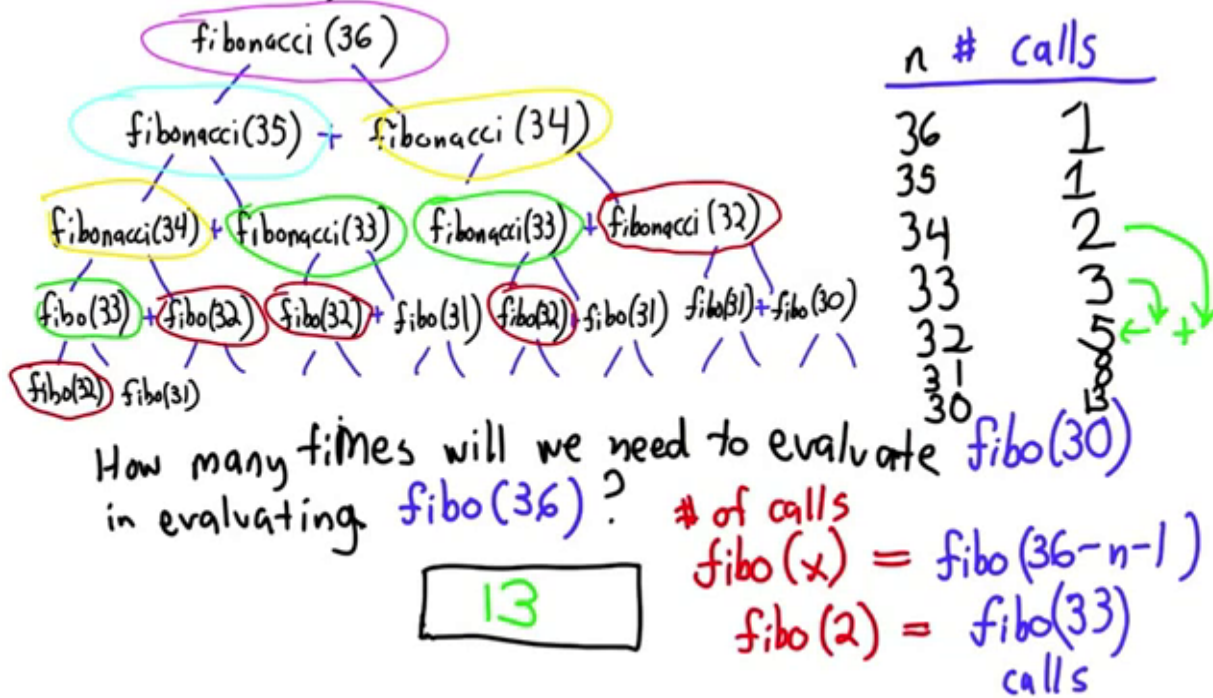 fibonacci (36)
fibonacci(35) + fibonacci (34)
fibonacci(34) + fibonacci(33) fibonacci(33) + fibonacci (32)
fibo(33) + fibo(32) fibo(32) + fibo(31) fibo(32) + fibo(31) fibo(31) + fibo(30)
fibo(32) fibo(31)
n # calls
36 1
35 1
34 2
33 3
32 5 +
31 8
30 13
How many times will we need to evaluate fibo(30)
in evaluating fibo(36)?
13
# of calls
fibo(x) = fibo(36-n-1)
fibo(2) = fibo(33)
calls